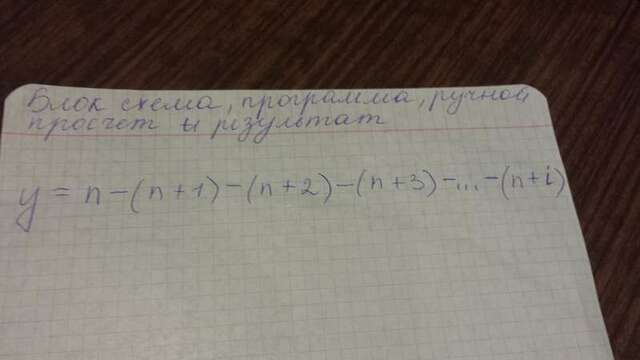 Блок схема, программа, ручной
просчет и результат
y = n-(n+1)-(n+2)-(n+3)-...-(n+i)